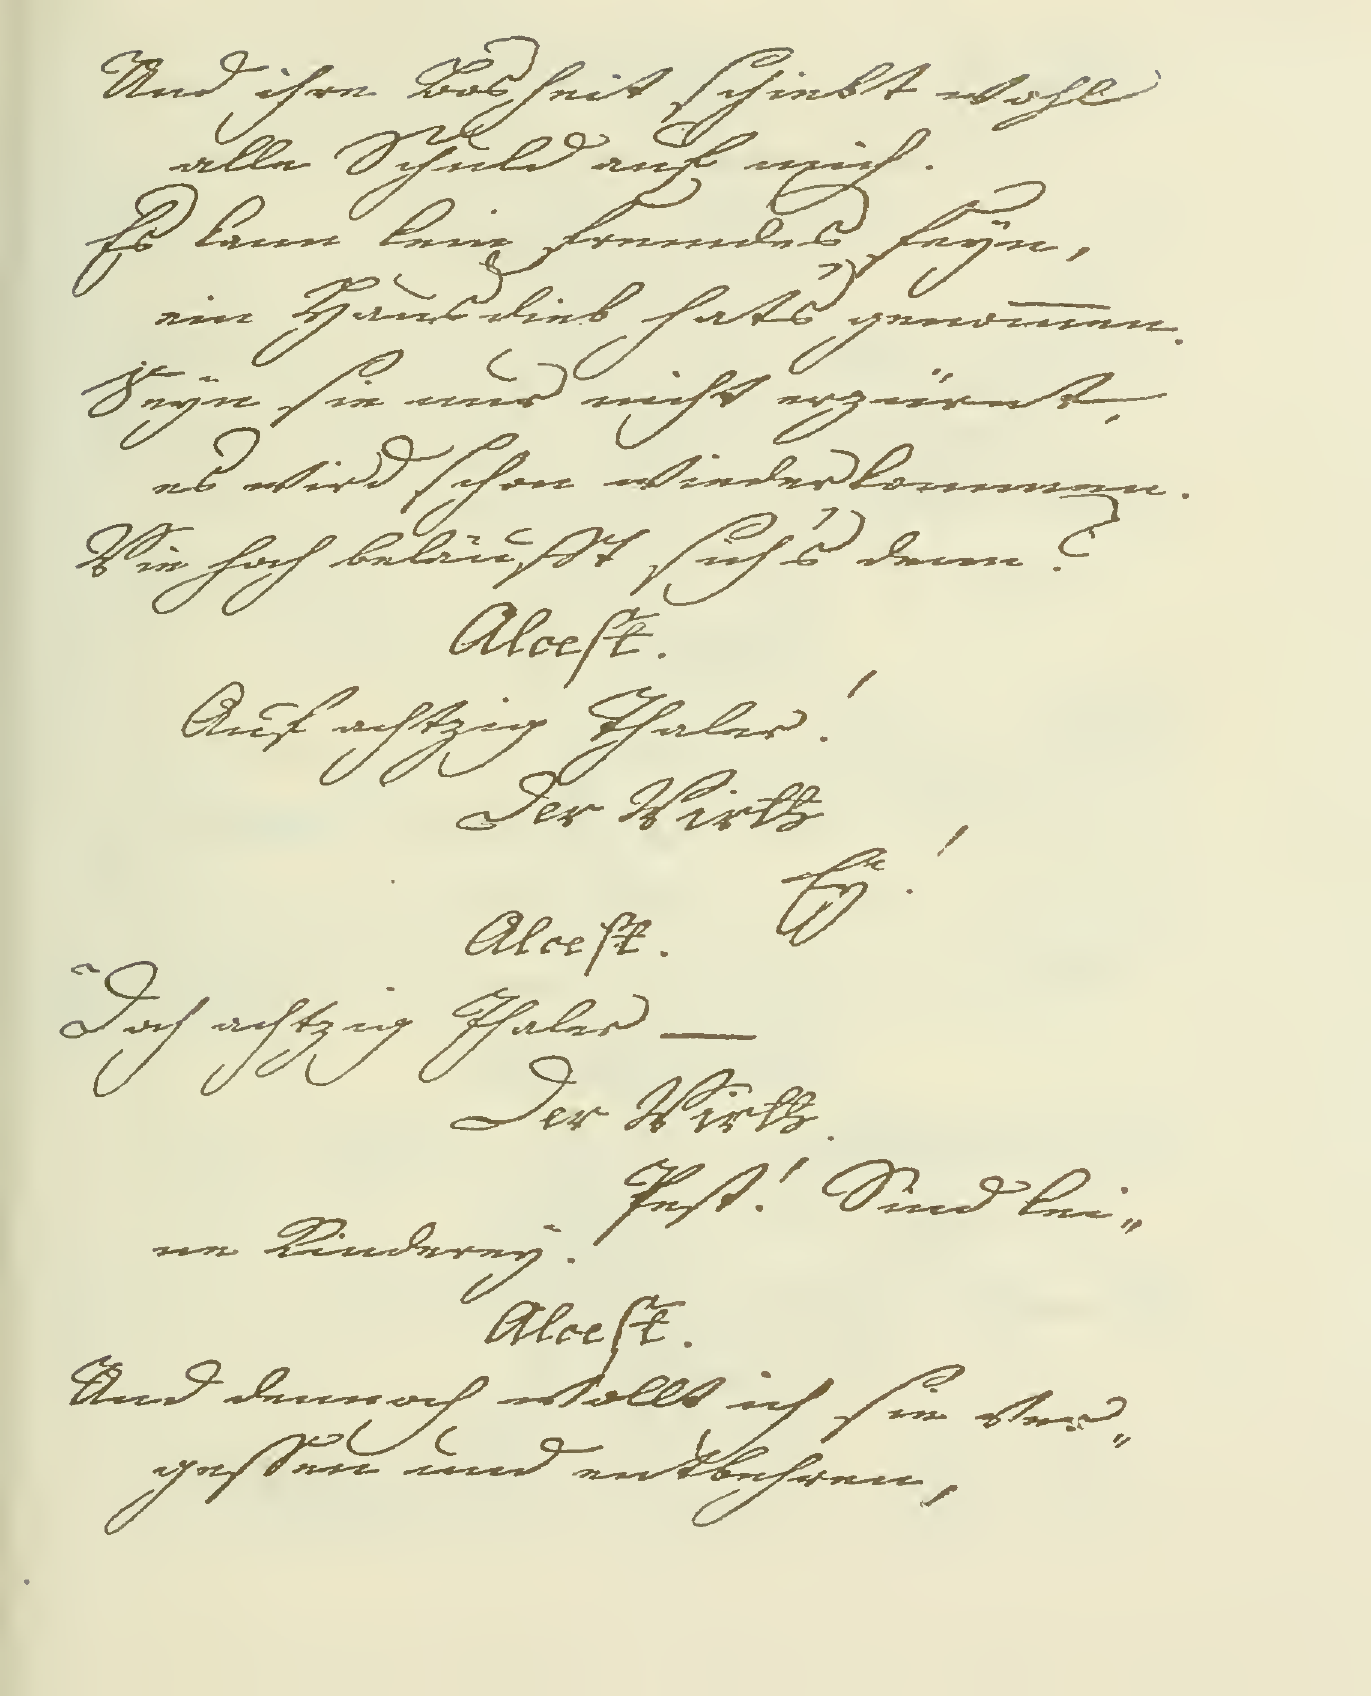 Und ihre Bosheit schiebt wohl
alle Schuld auf mich.
Es kann kein fremdes seyn,
ein Hausdieb hats genom̅en.
Seyn sie nur nicht erzürnt,
es wird schon wiederkommen.
Wie hoch beläufft sich's denn?
Alcest.
Auf achtzig Thaler!
Der Wirth
Ey!
Alcest.
Doch achtzig Thaler —
Der Wirth.
Pest! Sind kei„
ne Kinderey.
Alcest.
Und dennoch wollt ich sie ver„
gessen und entbehren,